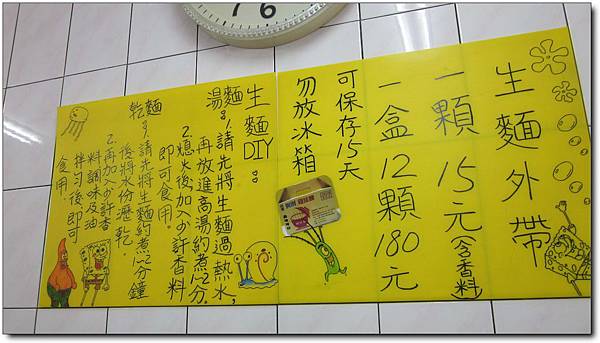 生麵外帶
一顆15元(含香料)
一盒12顆180元
可保存15天
勿放冰箱
生麵DIY:
湯麵:1.請先將生麵過熱水,
再放進高湯約煮1~2分.
2.熄火後加入少許香料
即可食用.
乾麵:1.請先將生麵約煮1~2分鐘
後將水份瀝乾.
2.再加入少許香
料調味及油
拌勻後即可
食用.
6